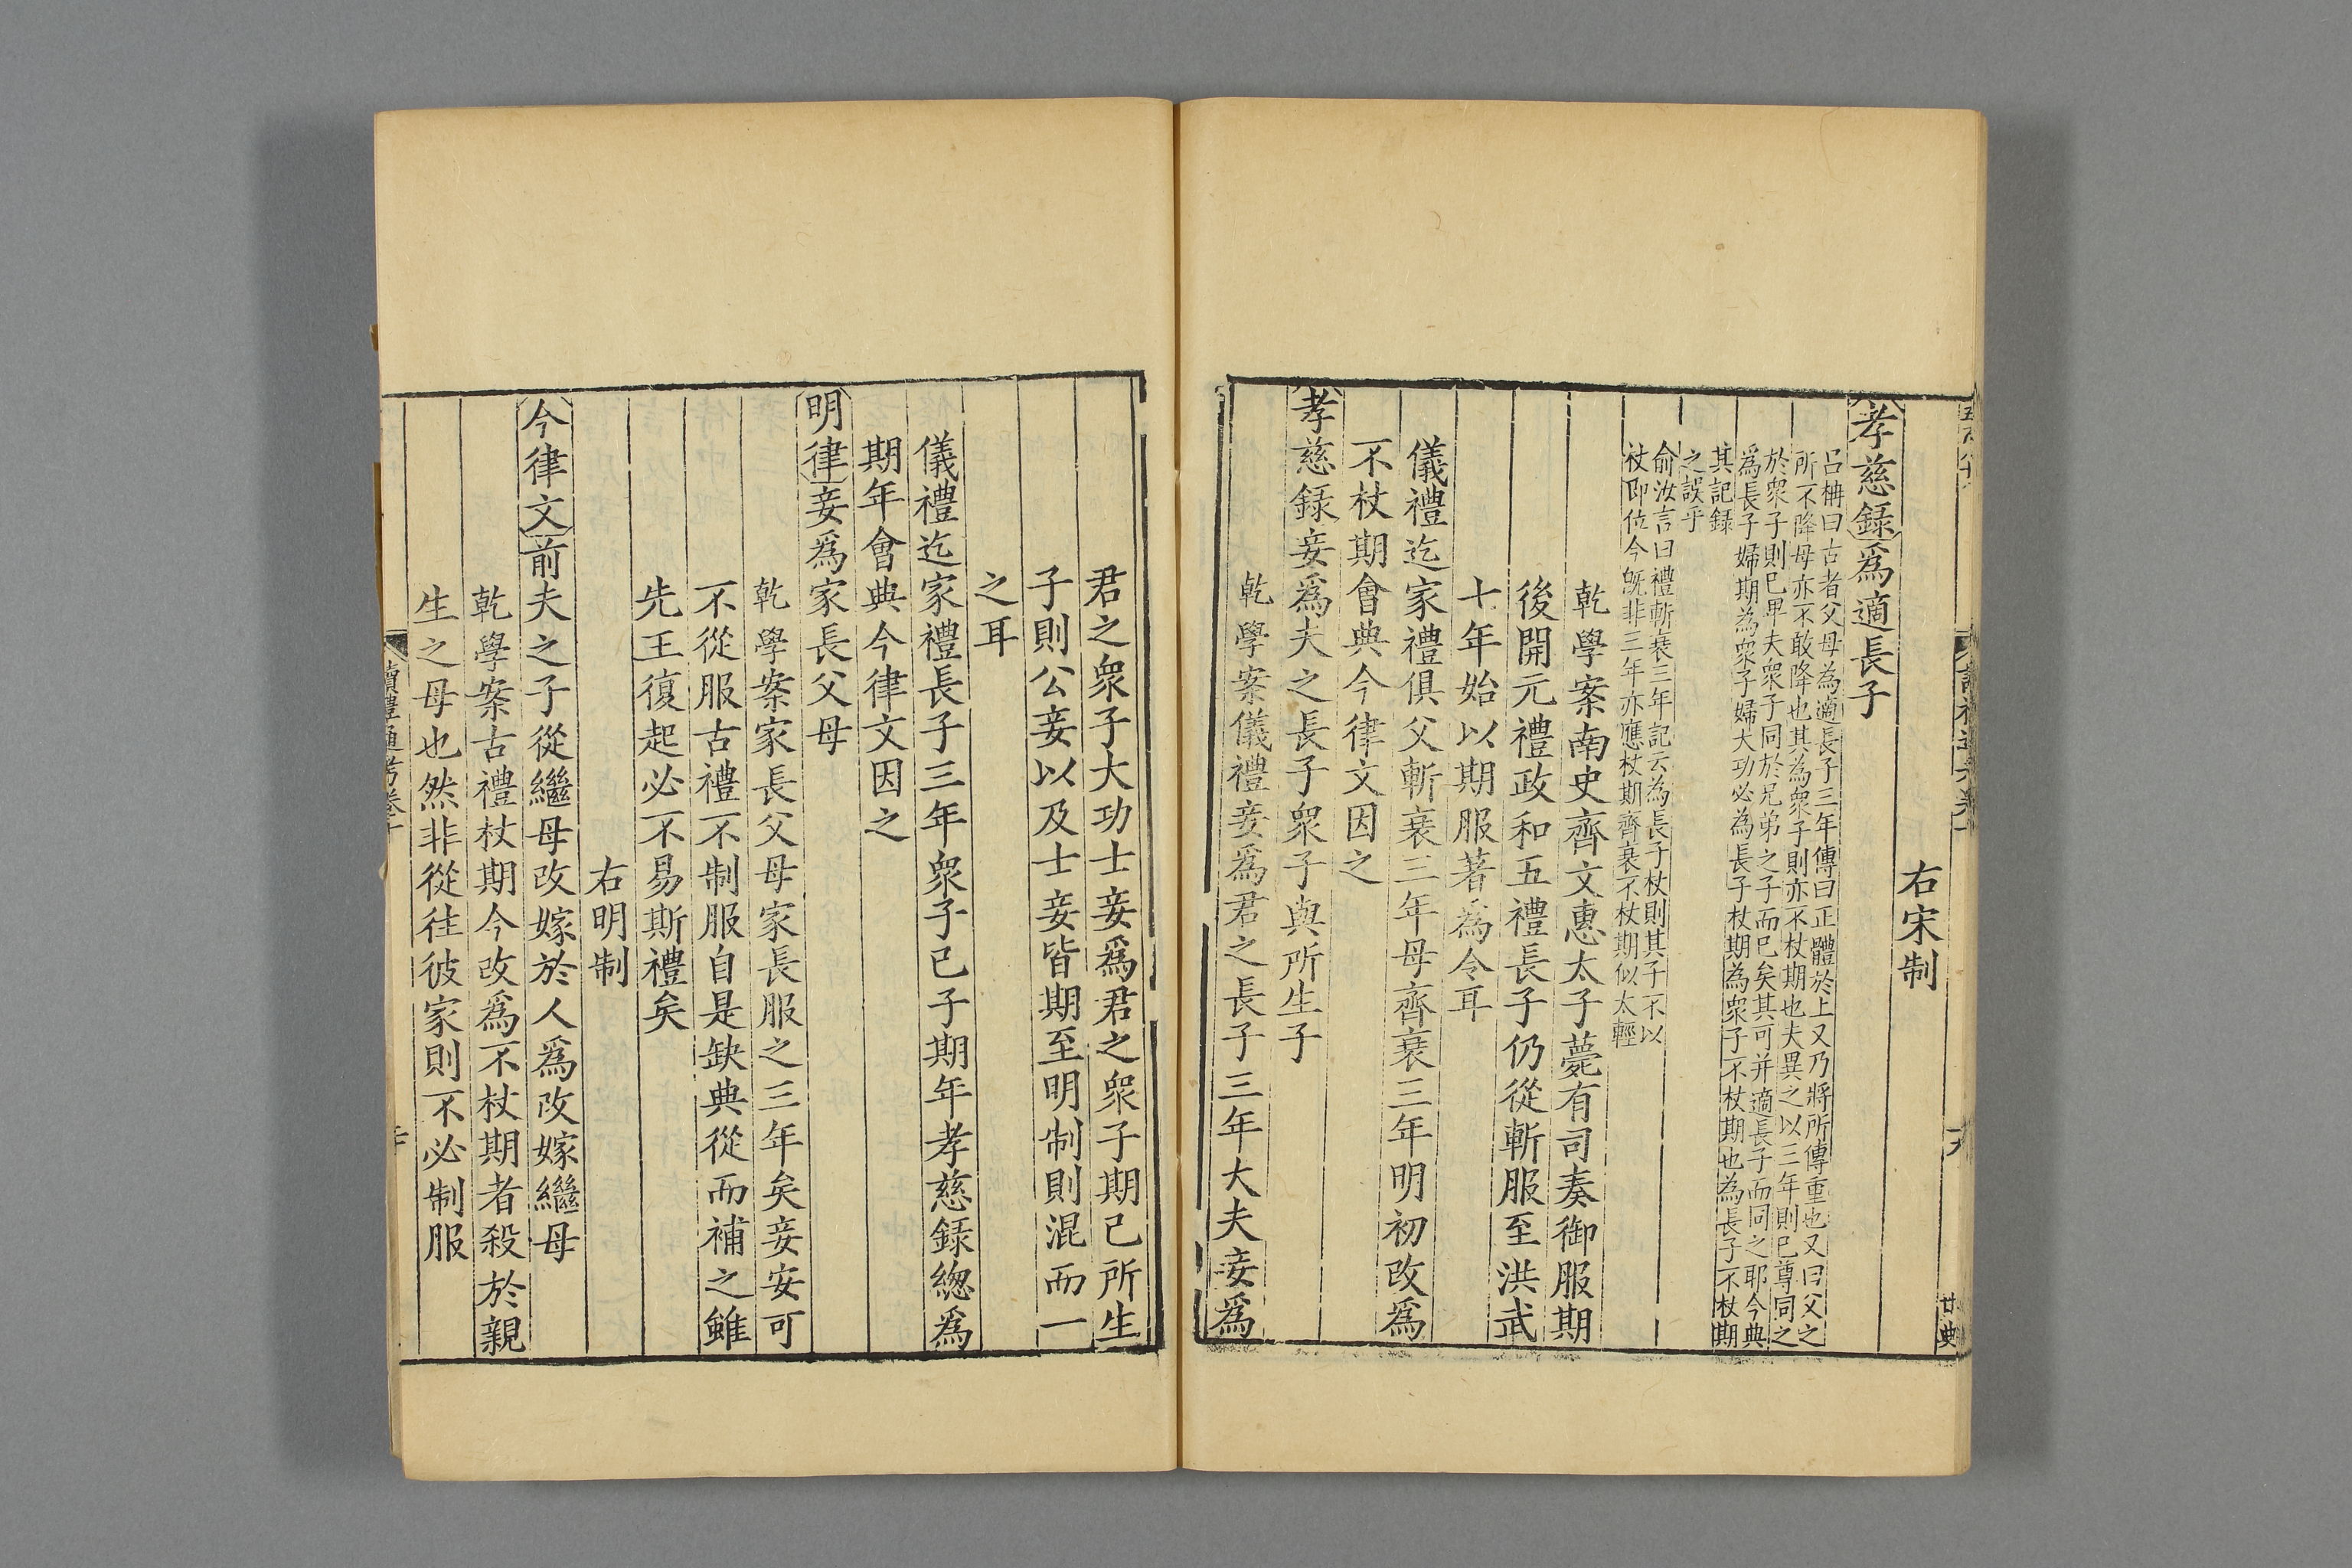 右宋制
孝慈錄爲適長子
呂柟曰古者父母為適長子三年傳曰正體於上又乃將所傳重也又曰父之
所不降母亦不敢降也其為衆子則亦不杖期也夫異之以三年則已尊同之
於衆子則已卑夫衆子同於兄弟之子而已矣其可并適長子而同之耶今典
為長子婦期為衆子婦大功必為長子杖期為衆子不杖期也為長子不杖期
其記錄
之誤乎
俞汝言曰禮斬衰三年記云為長子杖則其子不以
杖即位今旣非三年亦應杖期齊衰不杖期似太輕
乾學案南史齊文惠太子薨有司奏御服期
後開元禮政和五禮長子仍從斬服至洪武
十年始以期服著爲令耳
儀禮迄家禮俱父斬衰三年母齊衰三年明初改爲
不杖期會典今律文因之
孝慈錄妾爲夫之長子衆子與所生子
乾學案儀禮妾爲君之長子三年大夫妾爲
君之衆子大功士妾爲君之衆子期已所生
子則公妾以及士妾皆期至明制則混而一
之耳
儀禮迄家禮長子三年衆子已子期年孝慈錄緫爲
期年會典今律文因之
明律妾爲家長父母
乾學案家長父母家長服之三年矣妾安可
不從服古禮不制服自是缺典從而補之雖
先王復起必不易斯禮矣
右明制
今律文前夫之子從繼母改嫁於人爲改嫁繼母
乾學案古禮杖期今改爲不杖期者殺於親
生之母也然非從往彼家則不必制服
讀禮通考卷十